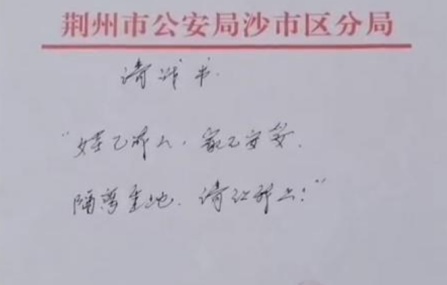 荆州市公安局沙市区分局
请战书
“娃已成人，家已安妥，
隔离重地，请让我上！”